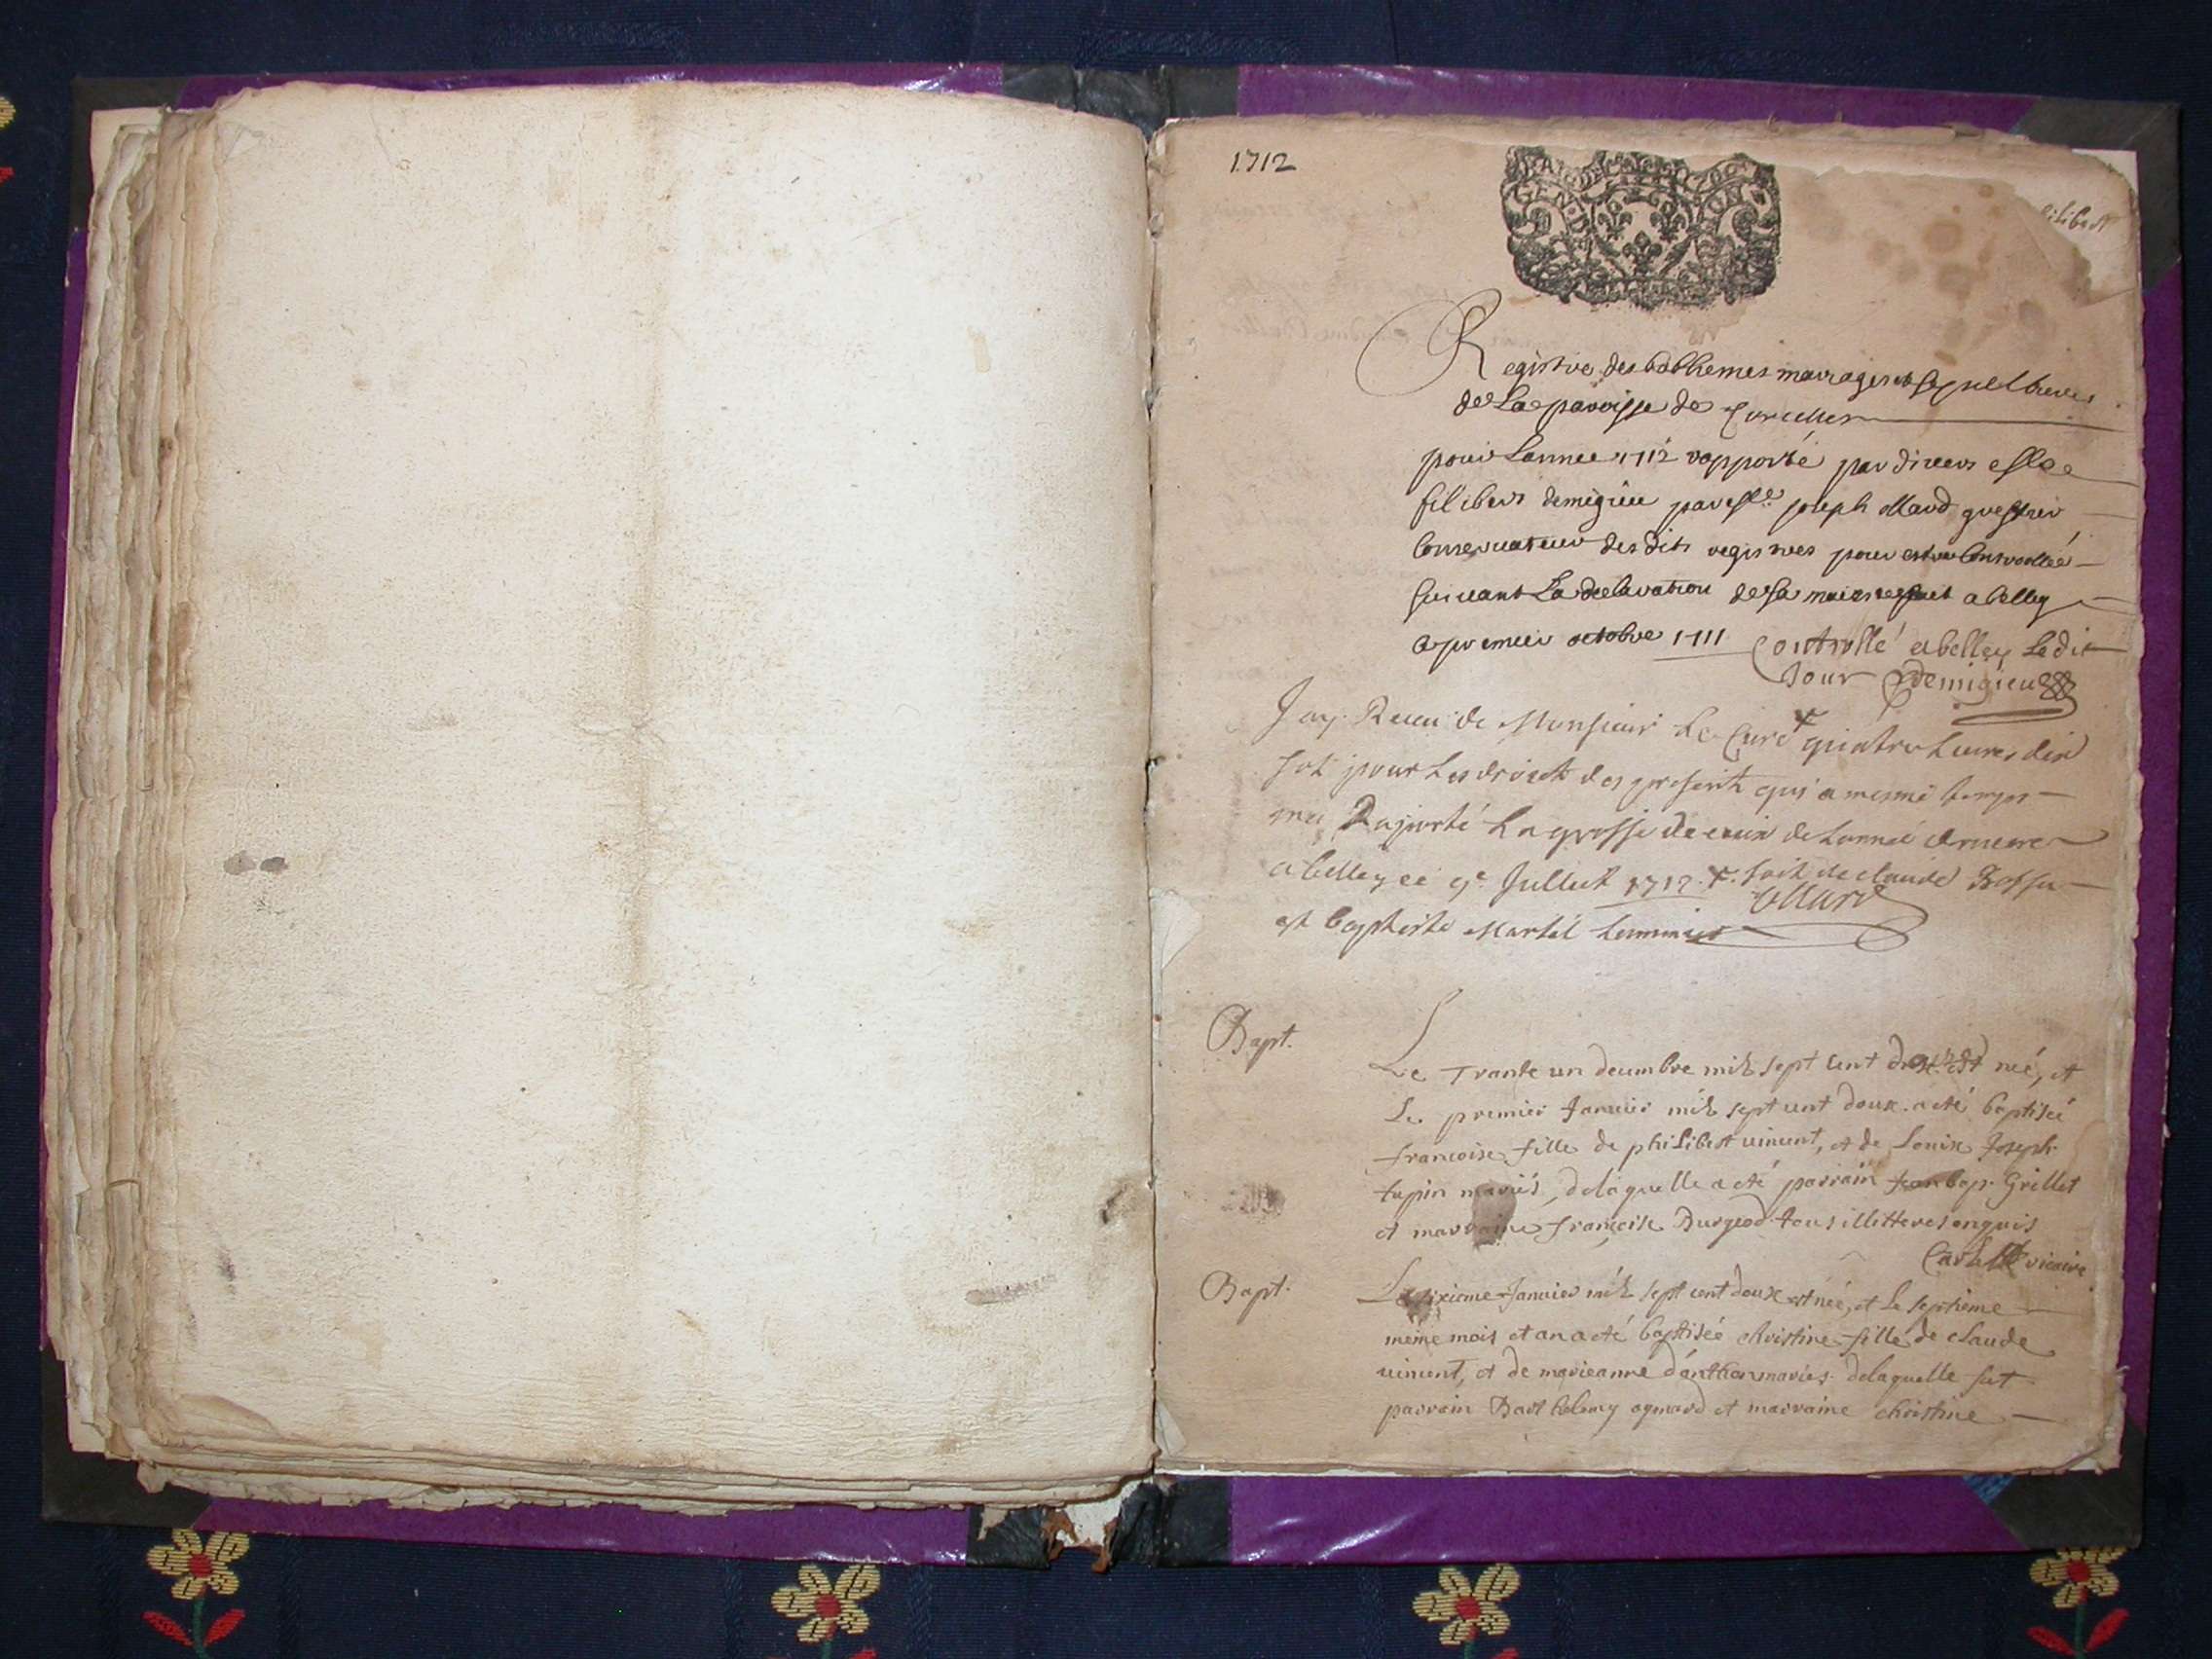 1712
GEN D
ilibert
Registre des babthemes mariages et sepueltures
de La paroisse de Corcelles
pour Lannee 1712 rapporté par divers
filibers demigieu par joseph ollard greffier
Conservateur des dits registres pour estre Controollée
suivant La declaration de sa majesté fait a belley
ce premier octobre 1711 Controllé a belley Le dit
Jour Demigieu
Jay Receu de Monsieur Le Curé + quatre Livres dix
sols pour Les droict des presents qui a mesme temps
ma Raporté La grosse de ceux de Lannee derniere
a belley ce 9e Julliet 1712. +. soit de claude Bossu
et baptiste Martel Luminier ollard
Bapt.
Le Trante un decembre mil sept cent est née, et
Le premier Janvier mil sept cent douze a eté baptisée
francoise fille de philibert vincent, et de Louise Joseph
tupin mariés, delaquelle a eté parrain Jean bap. Grillet
et marraine francoise Burgeod tous illitteres enquis
vicaire
Bapt.
Le sixieme Janvier mil sept cent douze est née, et Le septieme
même mois et an a eté baptisée christine fille de claude
vincent, et de marieanne d'anthon mariés. delaquelle fut
parrain Barthelemy aymard et marraine christine